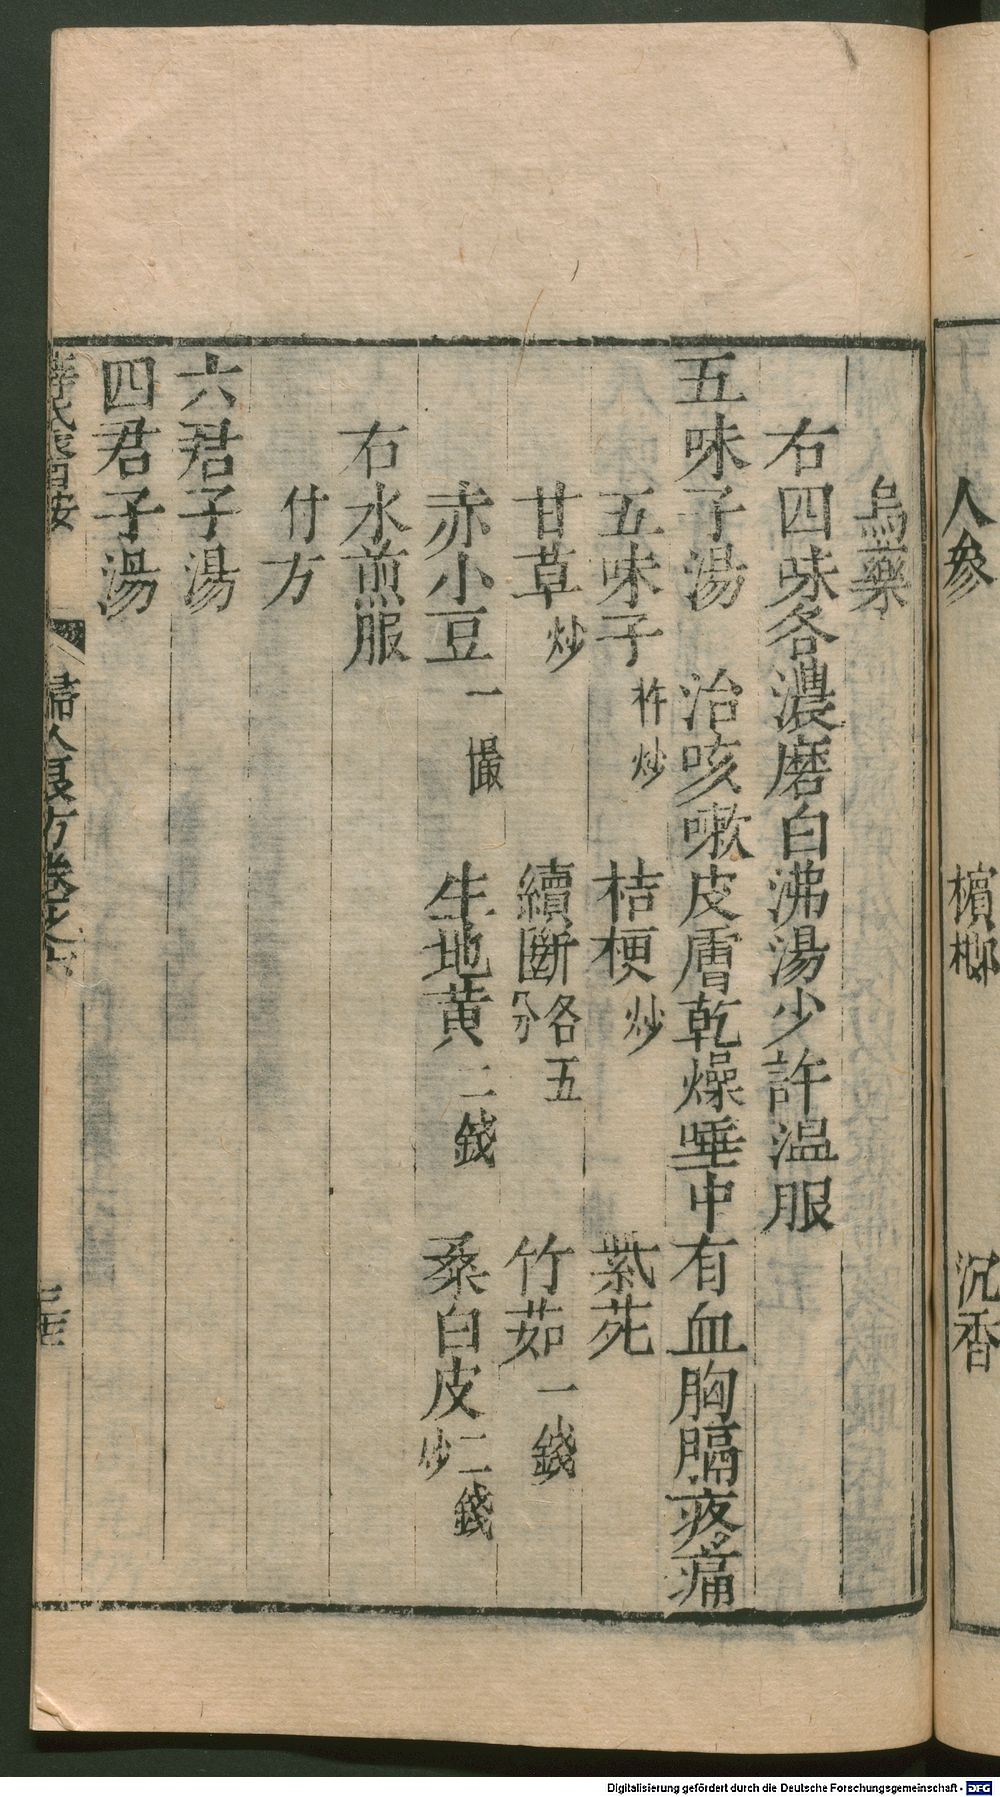 人參　檳榔　沉香
烏藥
右四味各濃磨白沸湯少許溫服
五味子湯　治咳嗽皮膚乾燥唾中有血胸膈疼痛
五味子杵炒　桔梗炒　紫苑
甘草炒　續斷各五分　竹茹一錢
赤小豆一撮　生地黃二錢　桑白皮二錢炒
右水煎服
付方
六君子湯
四君子湯
婦人良方卷之六
Digitalisierung gefördert durch die Deutsche Forschungsgemeinschaft - DFG